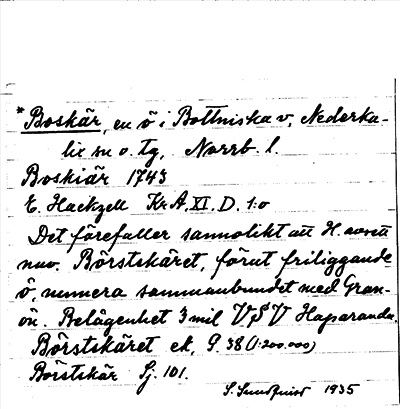 * Boskär, en ö i Bottniska v, Nederka-
lix sn o. tg, Norrb. l.
Boskiär 1743
E. Hackzell Kr A, XI, D. 1:o
Det förefaller sannolikt att H. avsett
nuv. Börstskäret, förut friliggande
ö, numera sammanbundet med Gran-
ön. Belägenhet 3 mil VSV Haparanda.
Börstskäret ek, G. 38 (1:200.000)
Börstskär Sj. 101.
S. Sundquist 1935